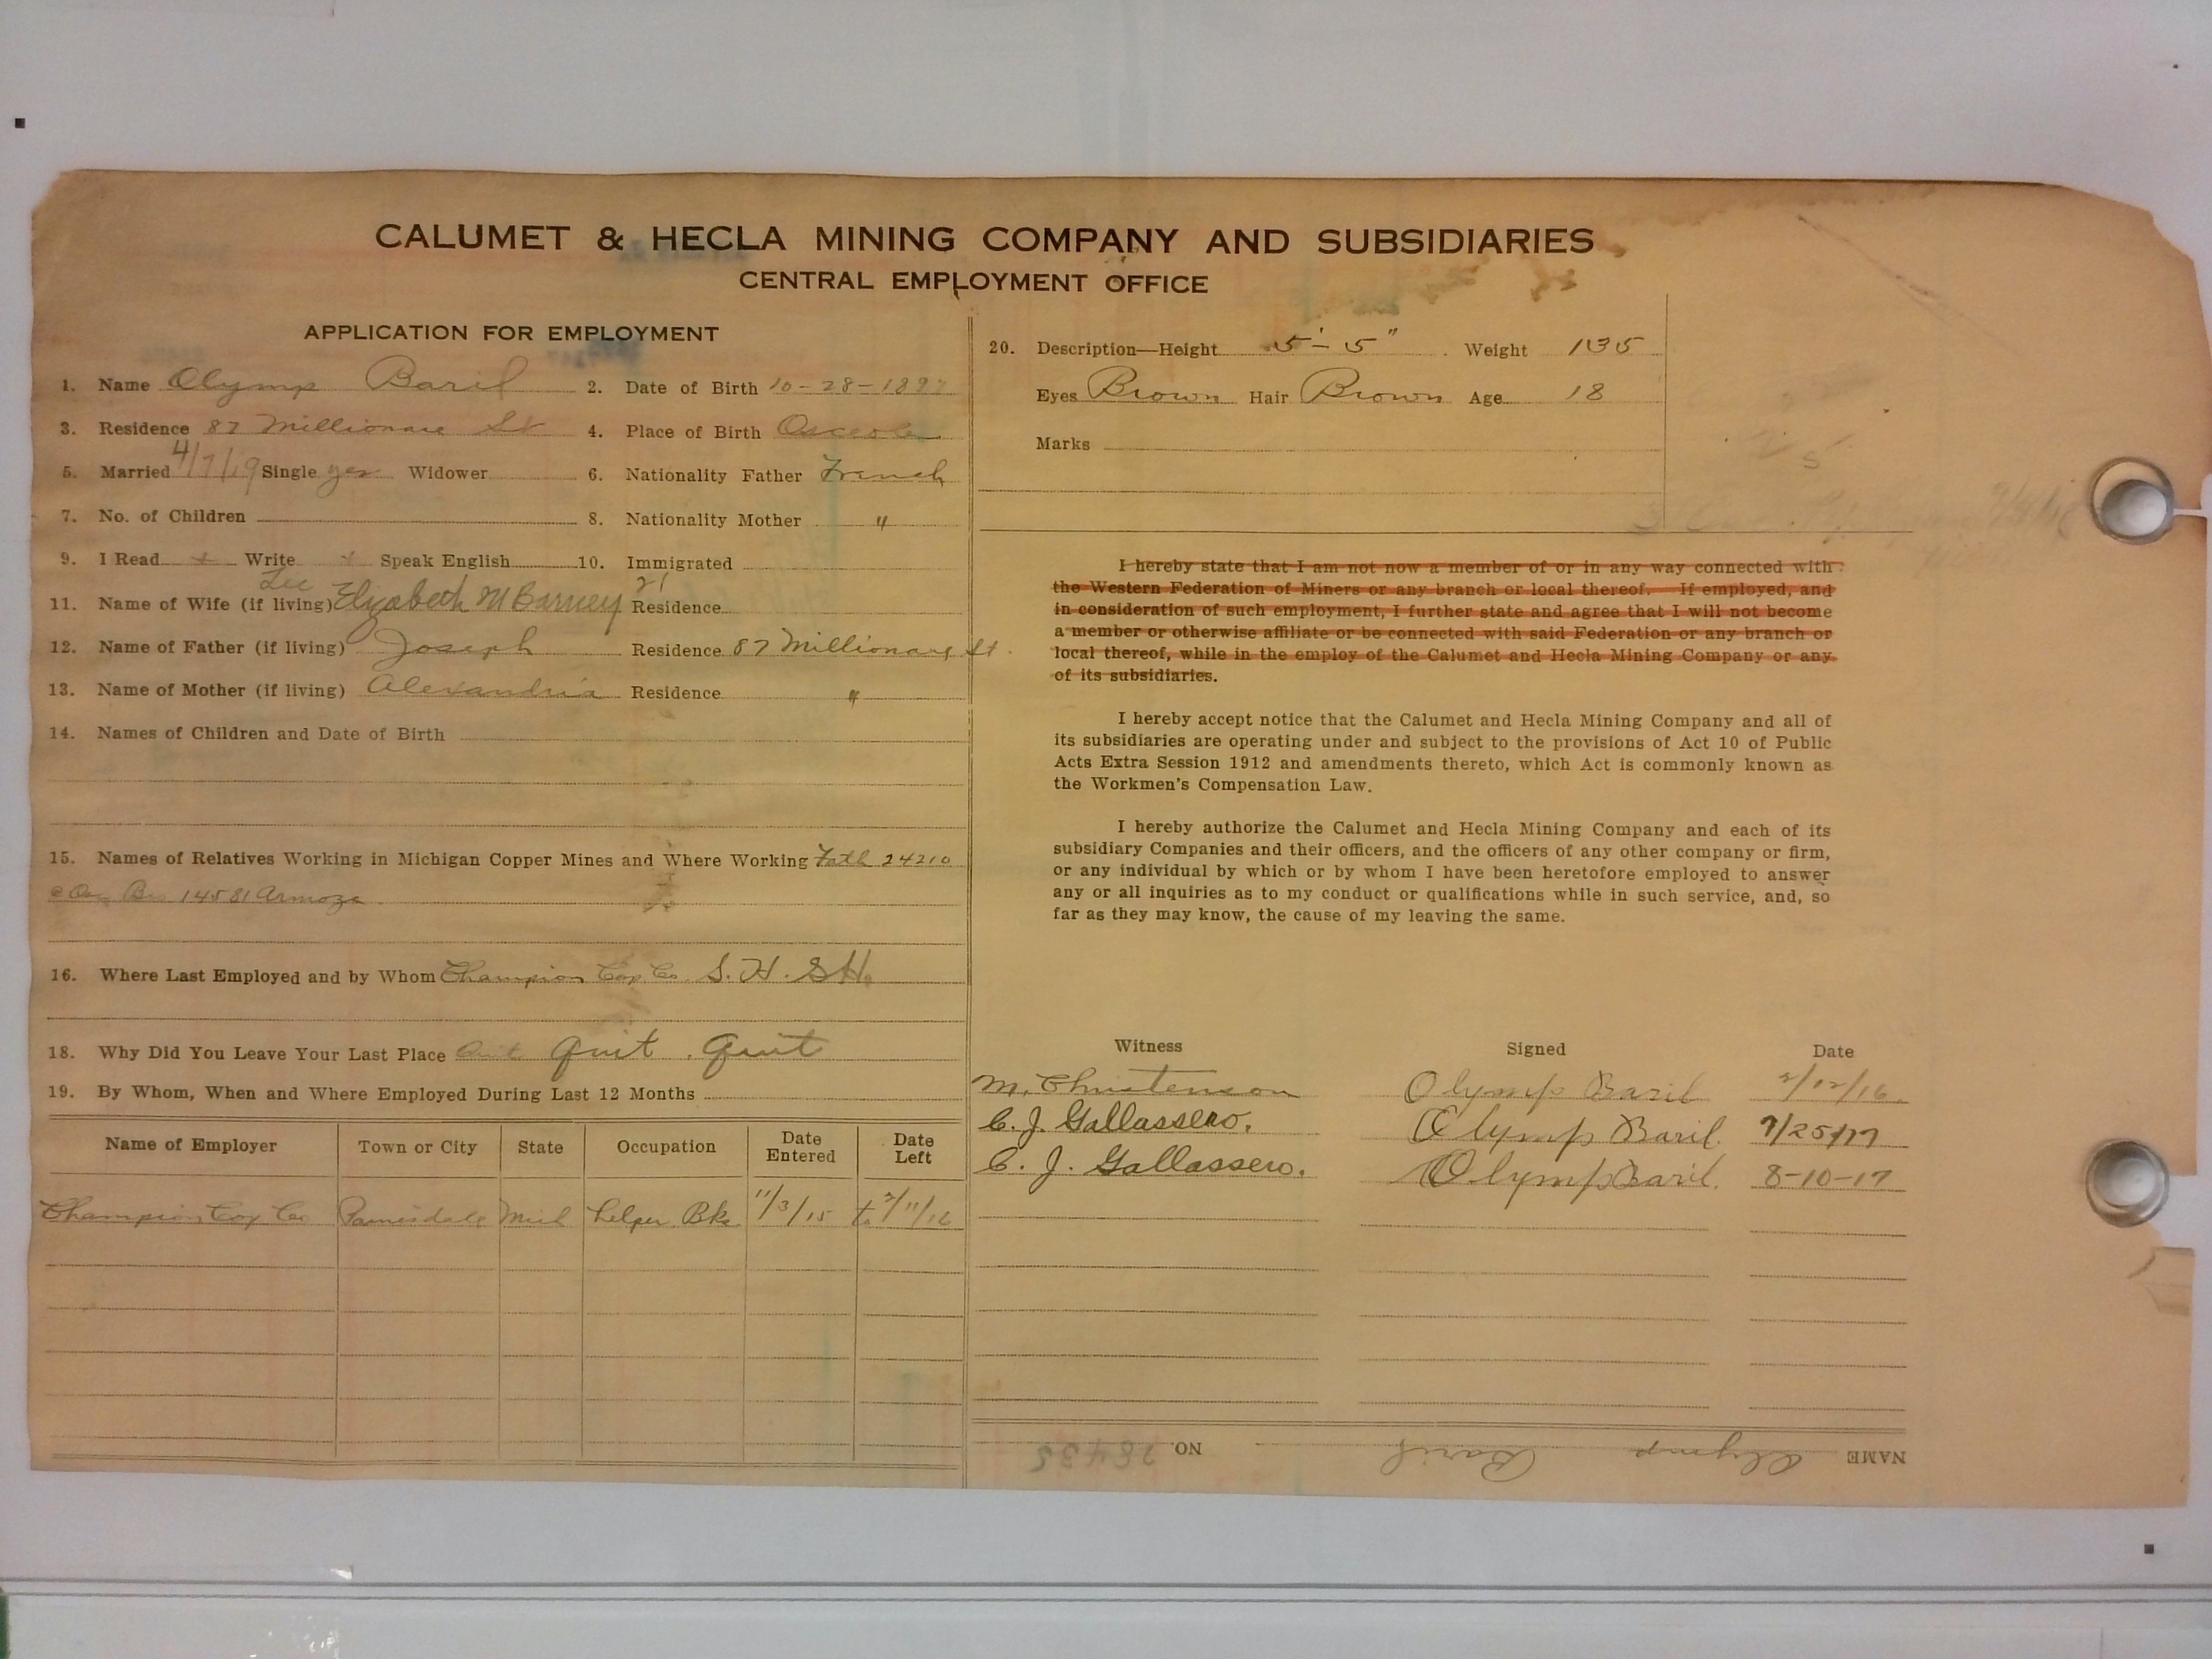 CALUMET & HECLA MINING COMPANY AND SUBSIDIARIES
CENTRAL EMPLOYMENT OFFICE
APPLICATION FOR EMPLOYMENT
1. Name Olymp Baril 2. Date of Birth 10-28-1897
3. Residence 87 Millionare St 4. Place of Birth Osceola
5. Married 4/7/19 Single yes Widower 6. Nationality Father French
7. No. of Children 8. Nationality Mother "
9. I Read + Write + Speak English 10. Immigrated
21
11. Name of Wife (if living) Elizabeth M Barney Residence
12. Name of Father (if living) Joseph Residence 87 Millionare St.
13. Name of Mother (if living) Alexandria Residence "
14. Names of Children and Date of Birth
15. Names of Relatives Working in Michigan Copper Mines and Where Working Fath 24210
14581
16. Where Last Employed and by Whom Champion Cop Co. S. H.
18. Why Did You Leave Your Last Place Quit Quit. Quit
19. By Whom, When and Where Employed During Last 12 Months
Name of Employer Town or City State Occupation Date Entered Date Left
Champion Cop Co Painesdale Mich helper Bks. 11/3/15 to 2/11/16
20. Description—Height 5'-5" Weight 135
Eyes Brown Hair Brown Age 18
Marks
I hereby state that I am not now a member of or in any way connected with
the Western Federation of Miners or any branch or local thereof. If employed, and
in consideration of such employment, I further state and agree that I will not become
a member or otherwise affiliate or be connected with said Federation or any branch or
local thereof, while in the employ of the Calumet and Hecla Mining Company or any
of its subsidiaries.
I hereby accept notice that the Calumet and Hecla Mining Company and all of
its subsidiaries are operating under and subject to the provisions of Act 10 of Public
Acts Extra Session 1912 and amendments thereto, which Act is commonly known as
the Workmen's Compensation Law.
I hereby authorize the Calumet and Hecla Mining Company and each of its
subsidiary Companies and their officers, and the officers of any other company or firm,
or any individual by which or by whom I have been heretofore employed to answer
any or all inquiries as to my conduct or qualifications while in such service, and, so
far as they may know, the cause of my leaving the same.
Witness Signed Date
M. Christenson Olymp Baril 2/12/16.
C. J. Gallassero. Olymp Baril. 7/25/17
C. J. Gallassero. Olymp Baril. 8-10-17
NAME Olymp Baril NO. 28435